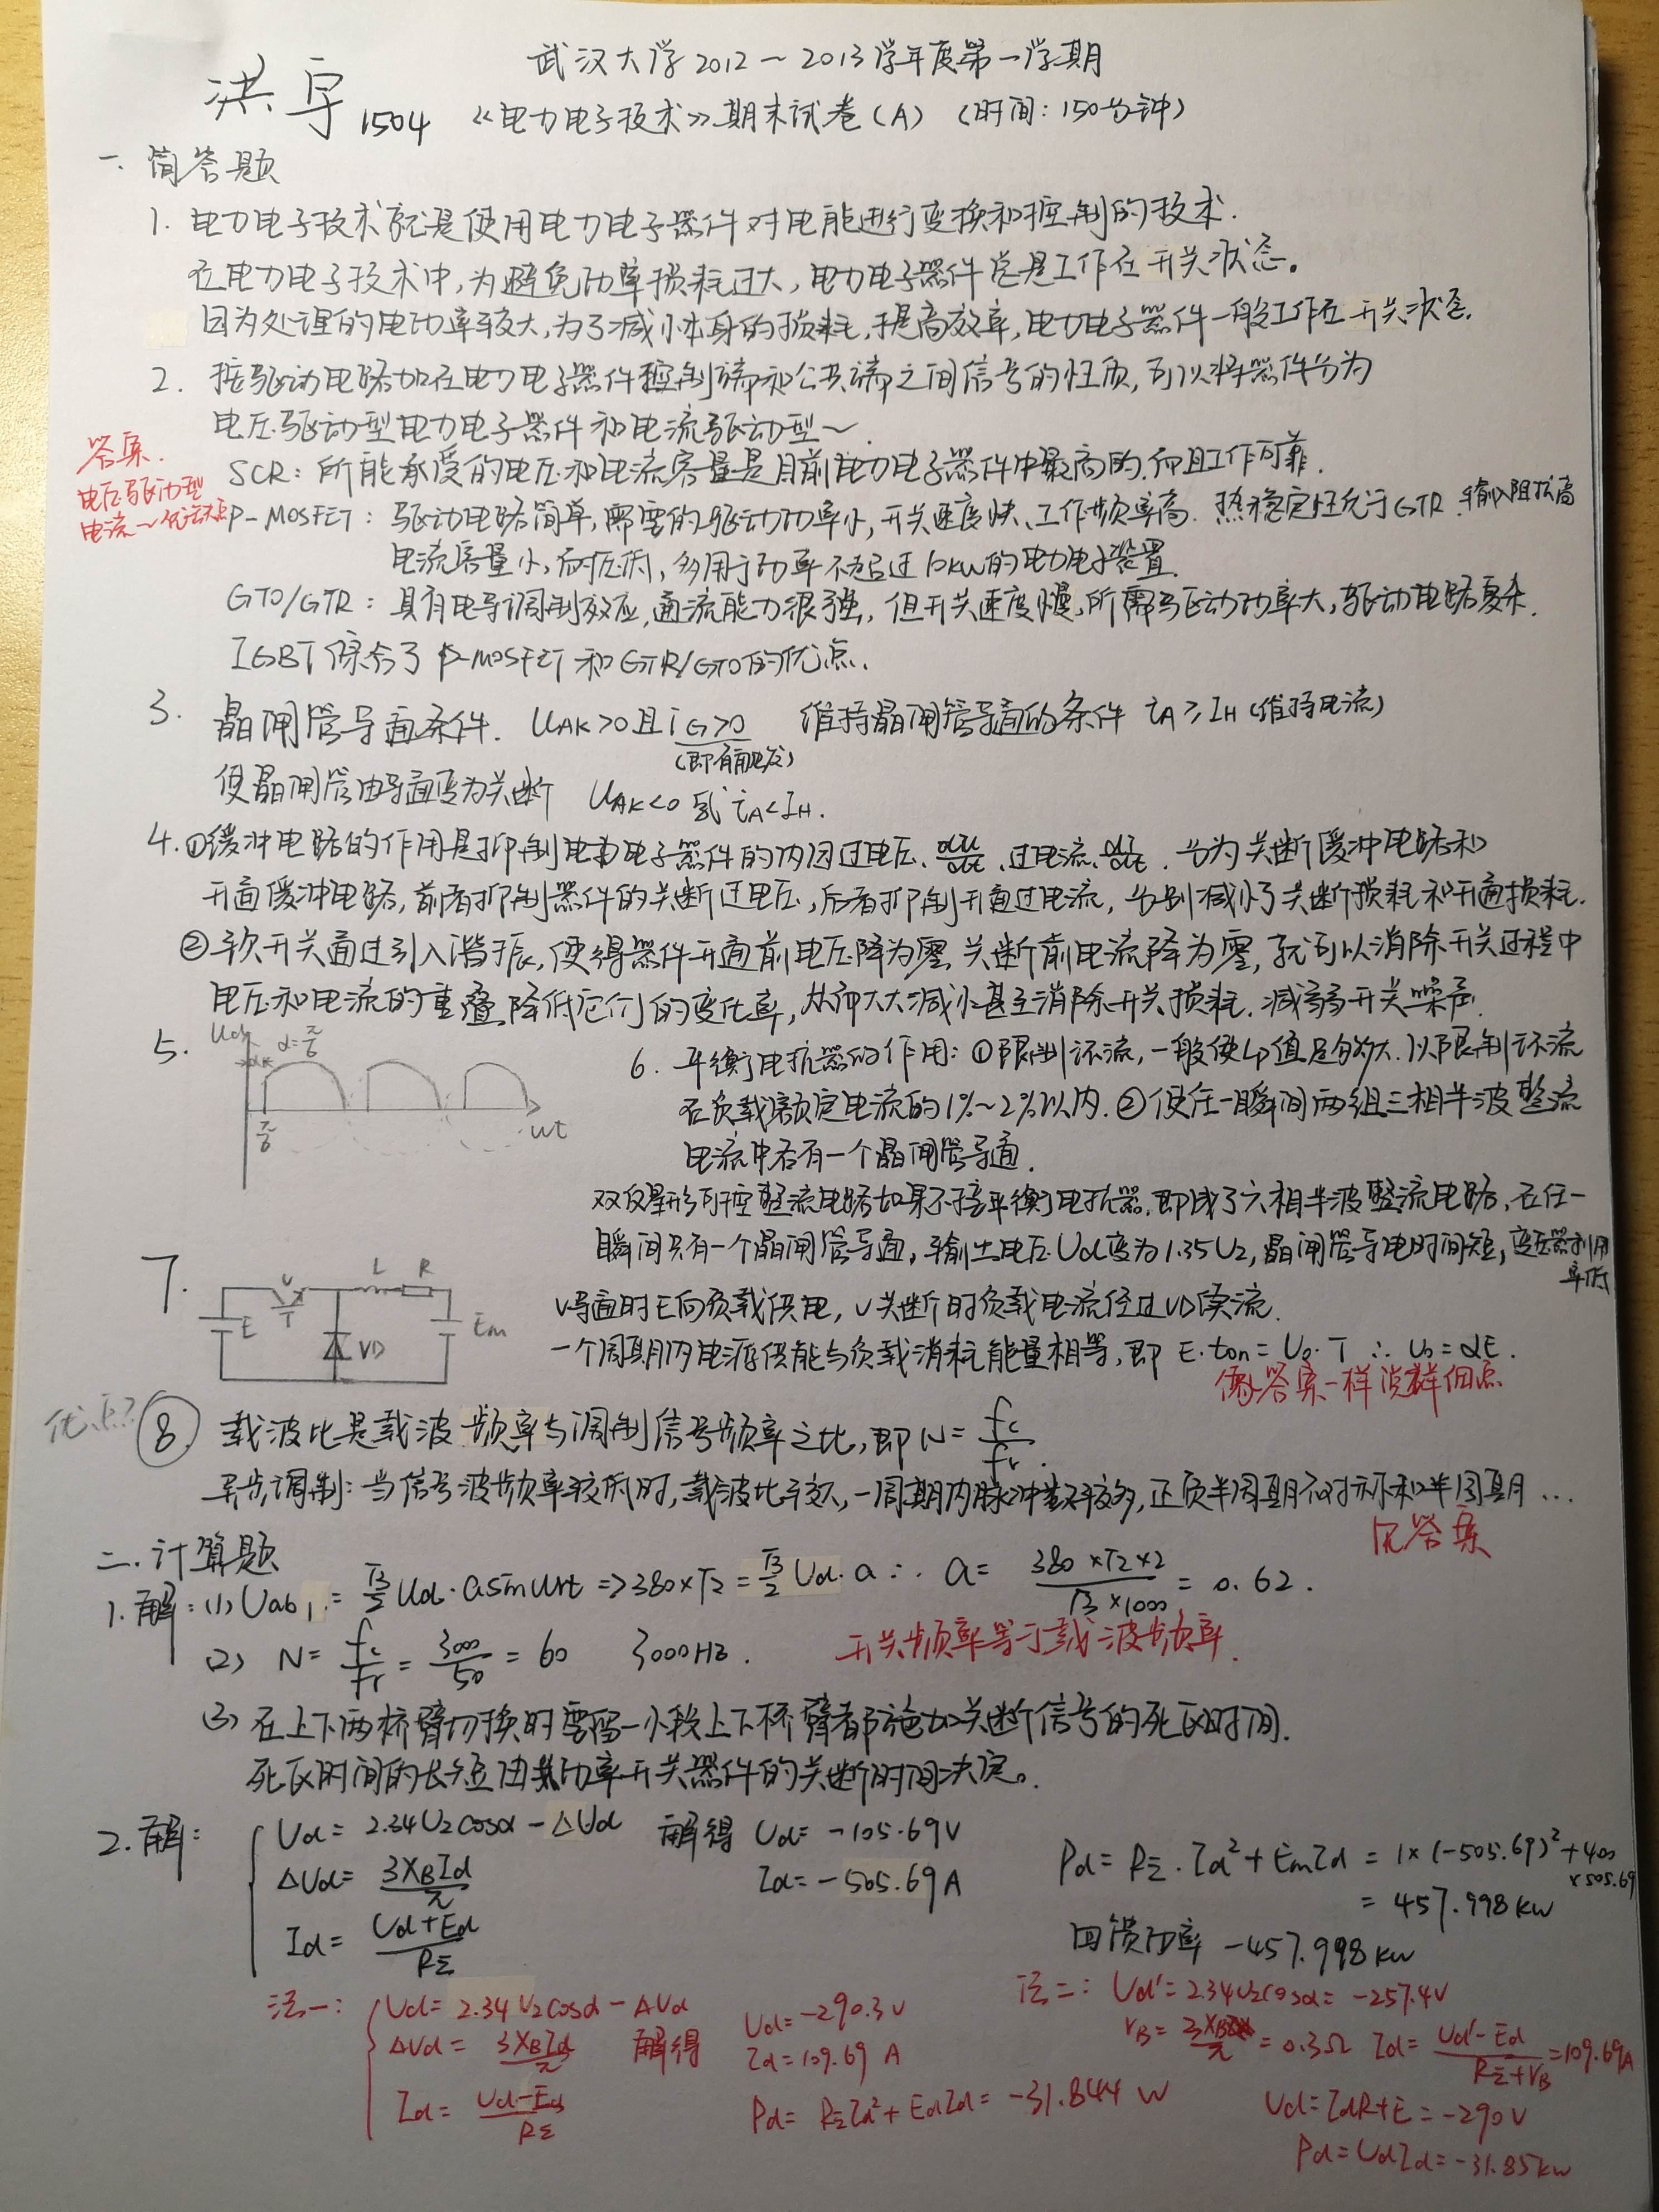 武汉大学2012～2013学年度第一学期
洪宇 1504 《电力电子技术》期末试卷(A) (时间:150分钟)
一.简答题
1. 电力电子技术就是使用电力电子器件对电能进行变换和控制的技术.
在电力电子技术中,为避免功率损耗过大,电力电子器件总是工作在开关状态。
因为处理的电功率较大,为了减小本身的损耗,提高效率,电力电子器件一般工作在开关状态.
2. 按驱动电路加在电力电子器件控制端和公共端之间信号的性质,可以将器件分为
电压驱动型电力电子器件和电流驱动型～.
答案.
电压驱动型
电流～优缺点
SCR: 所能承受的电压和电流容量是目前电力电子器件中最高的,而且工作可靠.
P-MOSFET: 驱动电路简单,需要的驱动功率小,开关速度快、工作频率高. 热稳定性优于GTR.输入阻抗高
电流容量小,耐压低,多用于功率不超过10kW的电力电子装置.
GTO/GTR: 具有电导调制效应,通流能力很强,但开关速度慢,所需驱动功率大,驱动电路复杂.
IGBT综合了P-MOSFET和GTR/GTO的优点.
3. 晶闸管导通条件. UAK>0且iG>0 维持晶闸管导通的条件 iA≥IH(维持电流)
(即有触发)
使晶闸管由导通变为关断 UAK<0 或 iA<IH.
4.①缓冲电路的作用是抑制电力电子器件的内因过电压、du/dt、过电流、di/dt. 分为关断缓冲电路和
开通缓冲电路,前者抑制器件的关断过电压,后者抑制开通过电流,分别减小了关断损耗和开通损耗.
②软开关通过引入谐振,使得器件开通前电压降为零,关断前电流降为零,就可以消除开关过程中
电压和电流的重叠,降低它们的变化率,从而大大减小甚至消除开关损耗.减弱开关噪声.
5. Ud α α=π/6 π/6 ωt
6. 平衡电抗器的作用: ①限制环流,一般使Lp值足够大.以限制环流
在负载额定电流的1%~2%以内.②使任一瞬间两组三相半波整流
电流中各有一个晶闸管导通.
双反星形可控整流电路如果不接平衡电抗器.即成了六相半波整流电路,在任一
瞬间只有一个晶闸管导通,输出电压Ud变为1.35U2,晶闸管导电时间短,变压器利用
率低
7. E V T L R VD Em
V导通时E向负载供电,V关断时负载电流经过VD续流.
一个周期内电源供能与负载消耗能量相等,即 E·ton=U0·T ∴ U0=αE.
像答案一样说详细点
优点?
⑧ 载波比是载波频率与调制信号频率之比,即N=fc/fr.
异步调制:当信号波频率较低时,载波比较大,一周期内脉冲数较多,正负半周期不对称和半周期...
见答案
二.计算题
1.解:(1) Uab1=√3/2 Ud·a sinωrt => 380×√2=√3/2 Ud·a ∴ a= 380×√2×2/√3×1000 = 0.62.
(2) N= fc/fr = 3000/50 = 60 3000HZ. 开关频率等于载波频率.
(3) 在上下两桥臂切换时要留一小段上下桥臂都施加关断信号的死区时间.
死区时间的长短由功率开关器件的关断时间决定。
2.解: Ud= 2.34U2cosα-ΔUd 解得 Ud= -105.69V
ΔUd= 3XBId/π Id= -505.69A
Id= Ud+Ed/RΣ
Pd= RΣ·Id²+EmId = 1×(-505.69)²+400
×505.69
= 457.998kw
回馈功率 -457.998kw
法一: Ud= 2.34U2cosα-ΔUd Ud=-290.3V
ΔUd= 3XBId/π 解得 Id=109.69 A
Id= Ud-Ed/RΣ Pd= RΣId²+EdId= -31.844 W
法二: Ud'=2.34U2cosα= -257.4V
rB= 3XB/π =0.3Ω Id= Ud'-Ed/RΣ+rB =109.69A
Ud=IdR+E=-290V
Pd=UdId=-31.85kw